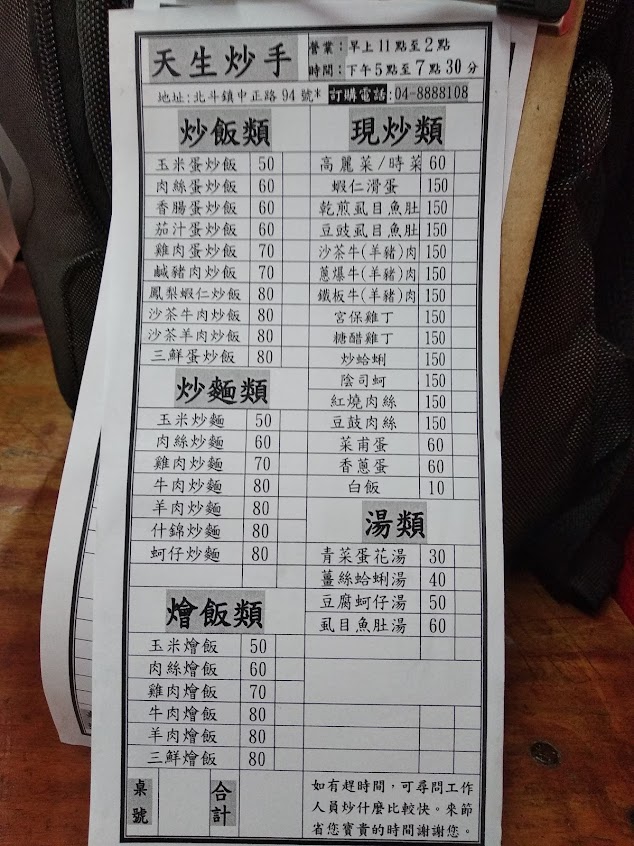 天生炒手
營業：早上11點至2點
時間：下午5點至7點30分
地址:北斗鎮中正路94號*訂購電話:04-8888108
炒飯類
玉米蛋炒飯 50
肉絲蛋炒飯 60
香腸蛋炒飯 60
茄汁蛋炒飯 60
雞肉蛋炒飯 70
鹹豬肉炒飯 70
鳳梨蝦仁炒飯 80
沙茶牛肉炒飯 80
沙茶羊肉炒飯 80
三鮮蛋炒飯 80
炒麵類
玉米炒麵 50
肉絲炒麵 60
雞肉炒麵 70
牛肉炒麵 80
羊肉炒麵 80
什錦炒麵 80
蚵仔炒麵 80
燴飯類
玉米燴飯 50
肉絲燴飯 60
雞肉燴飯 70
牛肉燴飯 80
羊肉燴飯 80
三鮮燴飯 80
桌號
合計
現炒類
高麗菜/時菜 60
蝦仁滑蛋 150
乾煎虱目魚肚 150
豆豉虱目魚肚 150
沙茶牛(羊豬)肉 150
蔥爆牛(羊豬)肉 150
鐵板牛(羊豬)肉 150
宮保雞丁 150
糖醋雞丁 150
炒蛤蜊 150
陰司蚵 150
紅燒肉絲 150
豆鼓肉絲 150
菜甫蛋 60
香蔥蛋 60
白飯 10
湯類
青菜蛋花湯 30
薑絲蛤蜊湯 40
豆腐蚵仔湯 50
虱目魚肚湯 60
如有趕時間，可尋問工作
人員炒什麼比較快。來節
省您寶貴的時間謝謝您。